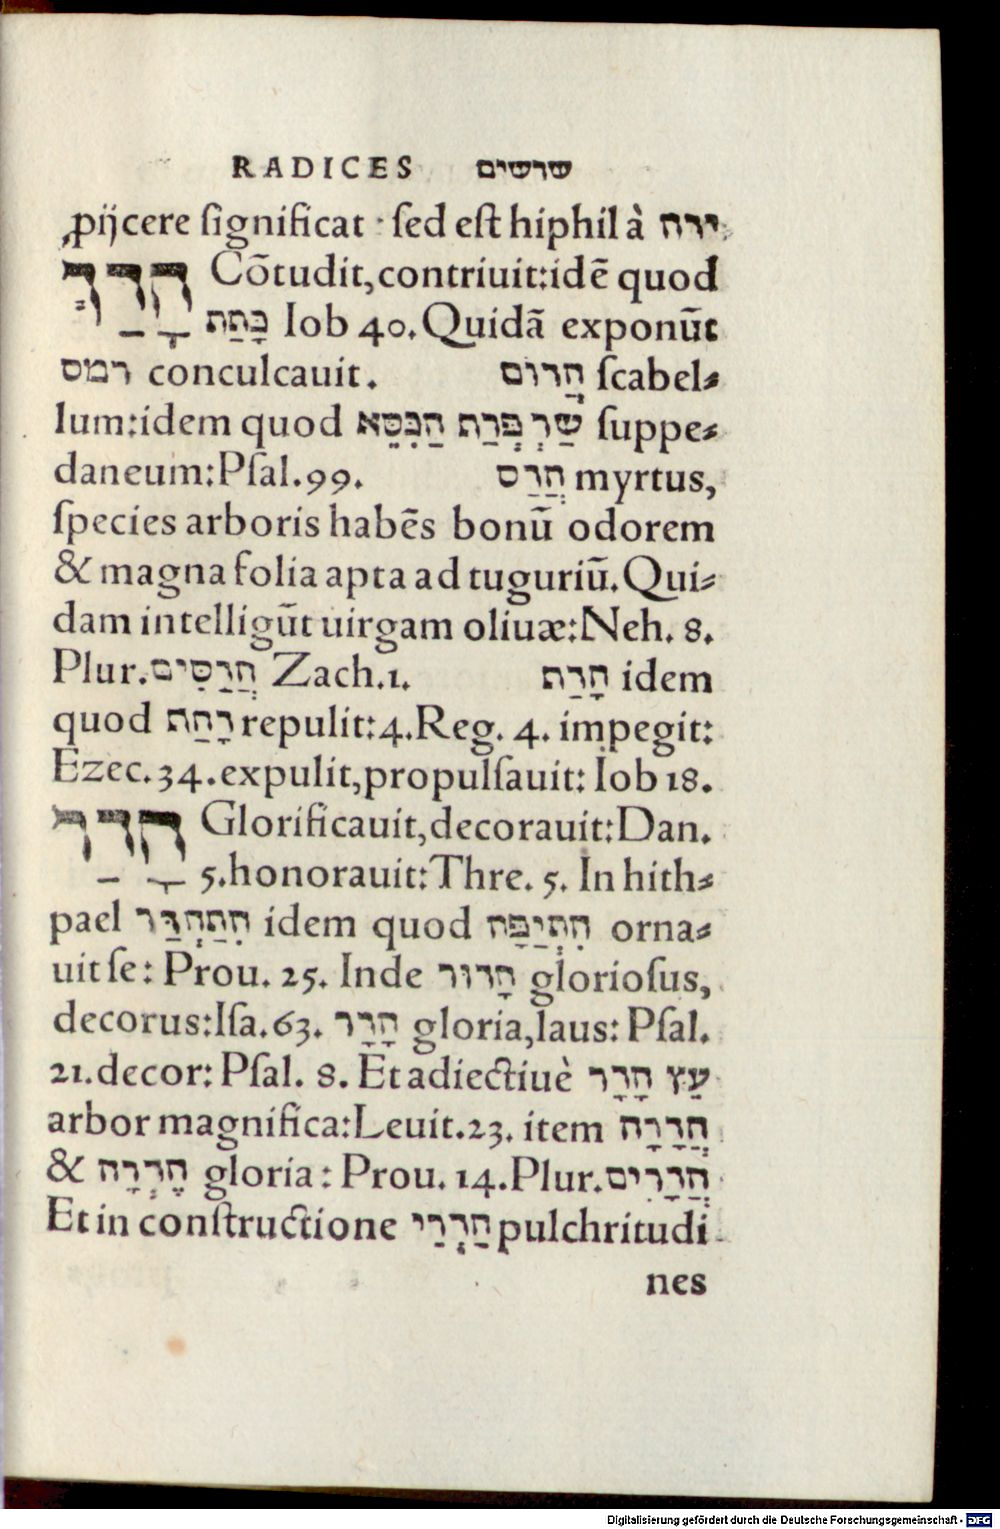 RADICES שרשים
ꝓijcere ſignificat · ſed eſt hiphil à ירה
הָדַךְ Cōtudit,contriuit:idē quod
כָּתַת Iob 40. Quidā exponūt
רמס conculcauit. הֲדוֹם ſcabel⸗
lum:idem quod שַׁרְפְּרַת הַכִּסֵּא ſuppe⸗
daneum:Pſal.99. הֲדַס myrtus,
ſpecies arboris habēs bonū odorem
& magna folia apta ad tuguriū. Qui⸗
dam intelligūt uirgam oliuæ:Neh. 8.
Plur. הֲדַסִּים Zach.1. הָדַף idem
quod דָּחָה repulit:4.Reg. 4. impegit:
Ezec.34.expulit,propulſauit: Iob 18.
הָדַר Glorificauit,decorauit:Dan.
5.honorauit:Thre. 5. In hith⸗
pael הִתְהַדַּר idem quod הִתְיַפָּה orna⸗
uit ſe: Prou. 25. Inde הָדוּר glorioſus,
decorus:Iſa.63. הָדָר gloria,laus: Pſal.
21.decor: Pſal. 8. Et adiectiuè עֵץ הָדָר
arbor magnifica:Leuit.23. item הֲדָרָה
& הֶדְרָה gloria: Prou. 14.Plur. הֲדָרִים
Et in conſtructione הַדְרֵי pulchritudi
nes
Digitalisierung gefördert durch die Deutsche Forschungsgemeinschaft - DFG